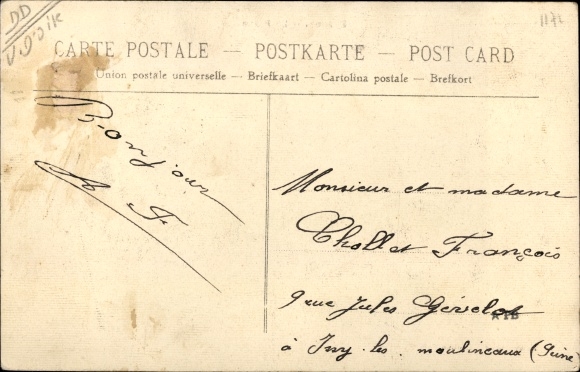 DD
V. D'Oile
1172
CARTE POSTALE — POSTKARTE — POST CARD
Union postale universelle — Briefkaart — Cartolina postale — Brefkort
Bonjour
A F
Monsieur et madame
Chollet François
9 rue Jules Gévelot
à Issy-les-moulineaux (Seine)